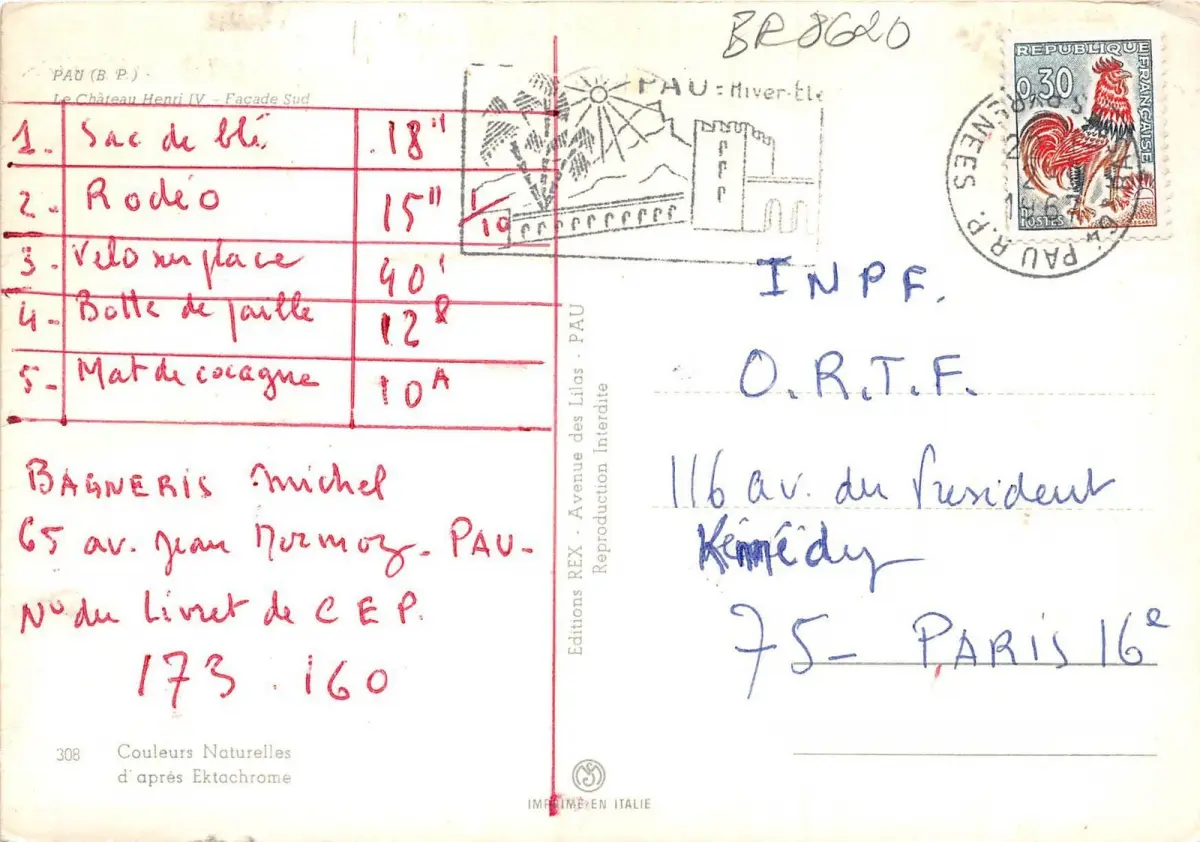 BR8620
PAU (B. P.)
Le Château Henri IV - Façade Sud
PAU: Hiver-Eté
REPUBLIQUE FRANÇAISE
0,30
POSTES
PAU R.P.
1. Sac de blé 18"
2. Rodéo 15" 1/10
3. Velo sur place 40'
4- Botte de paille 12
5- Mat de cocagne 10 A
BAGNERIS Michel
65 av. Jean Mermoz - PAU -
No du Livret de C E P.
173.160
308 Couleurs Naturelles
d'après Ektachrome
Editions REX - Avenue des Lilas - PAU
Reproduction Interdite
IMPRIMÉ EN ITALIE
INPF.
O.R.T.F.
116 av. du President
Kénnédy
75- PARIS 16e